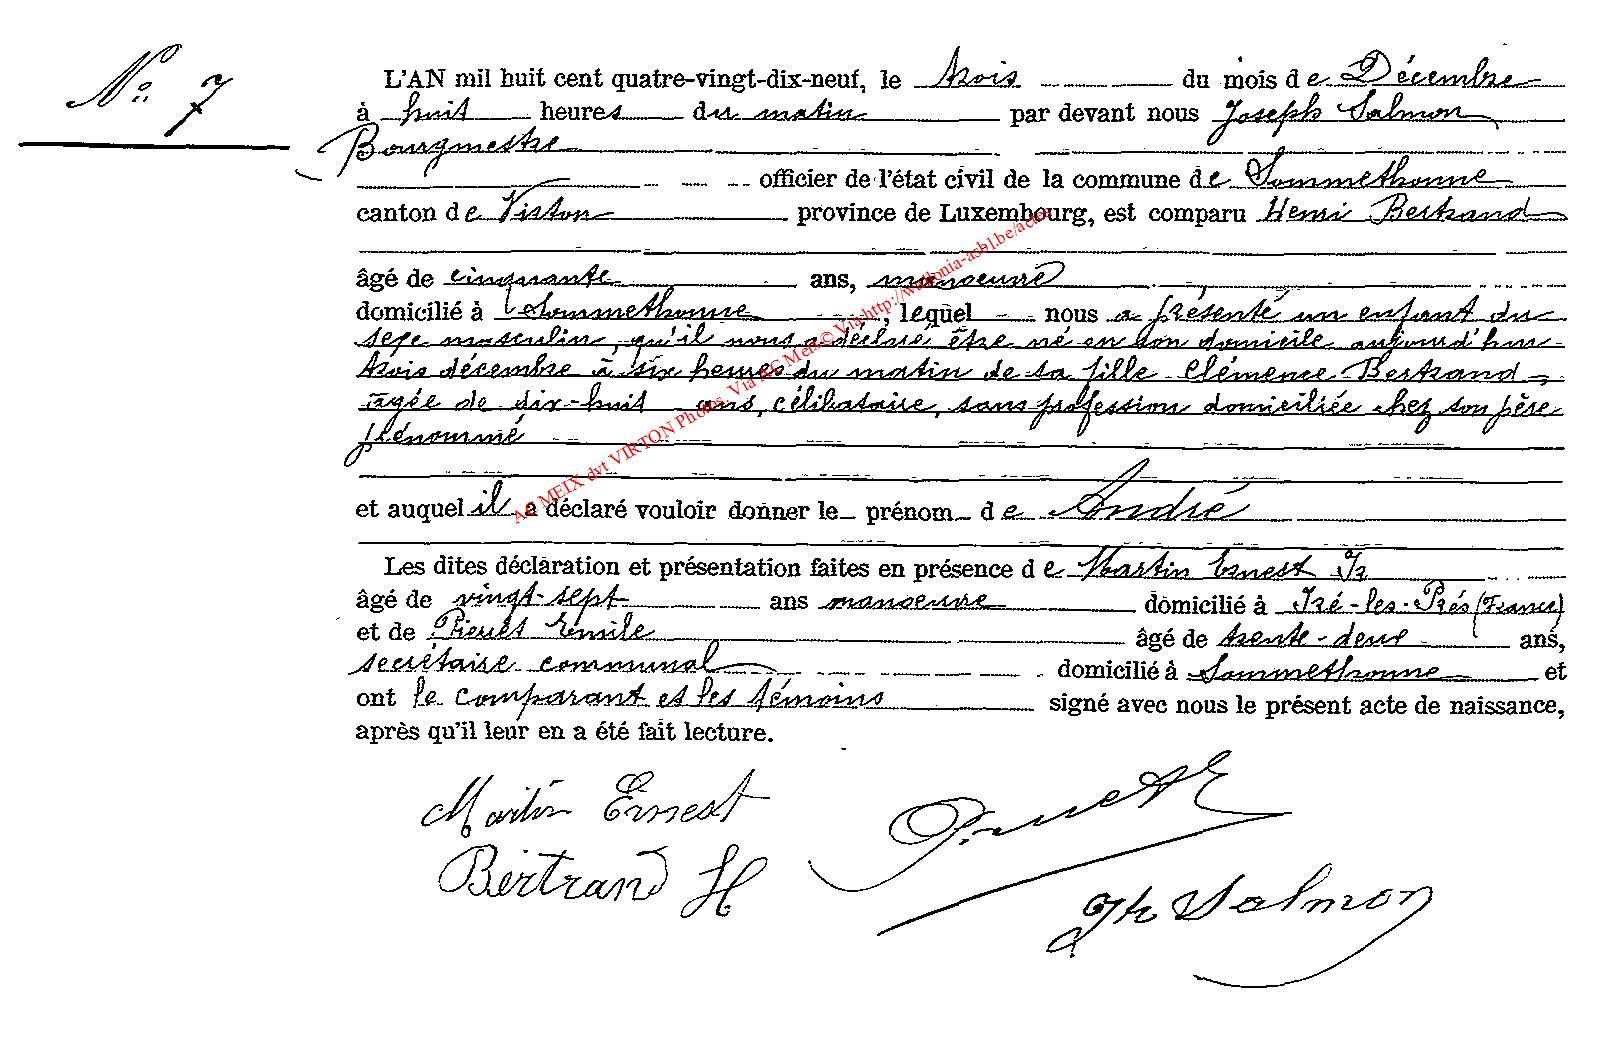 N° 7
L'AN mil huit cent quatre-vingt-dix-neuf, le trois du mois de Décembre
à huit heures du matin par devant nous Joseph Salmon
Bourgmestre
officier de l'état civil de la commune de Sommethonne
canton de Virton province de Luxembourg, est comparu Henri Bertrand
âgé de cinquante ans, manoeuvre
domicilié à Sommethonne, lequel nous a présenté un enfant du
sexe masculin, qu'il nous a déclaré être né en son domicile aujourd'hui
trois décembre à six heures du matin de sa fille Clémence Bertrand,
agée de dix-huit ans, célibataire, sans profession domiciliée chez son père
prénommé
et auquel il a déclaré vouloir donner le prénom de André
Les dites déclaration et présentation faites en présence de Martin Ernest
âgé de vingt-sept ans manoeuvre domicilié à Iré-les-Prés (France)
et de Emile âgé de trente-deux ans,
secrétaire communal domicilié à Sommethonne et
ont le comparant et les témoins signé avec nous le présent acte de naissance,
après qu'il leur en a été fait lecture.
Martin Ernest
Bertrand H
Jh Salmon
AC MEIX dvt VIRTON Photos Via AC Meix© Via http://wallonia-asbl.be/actes